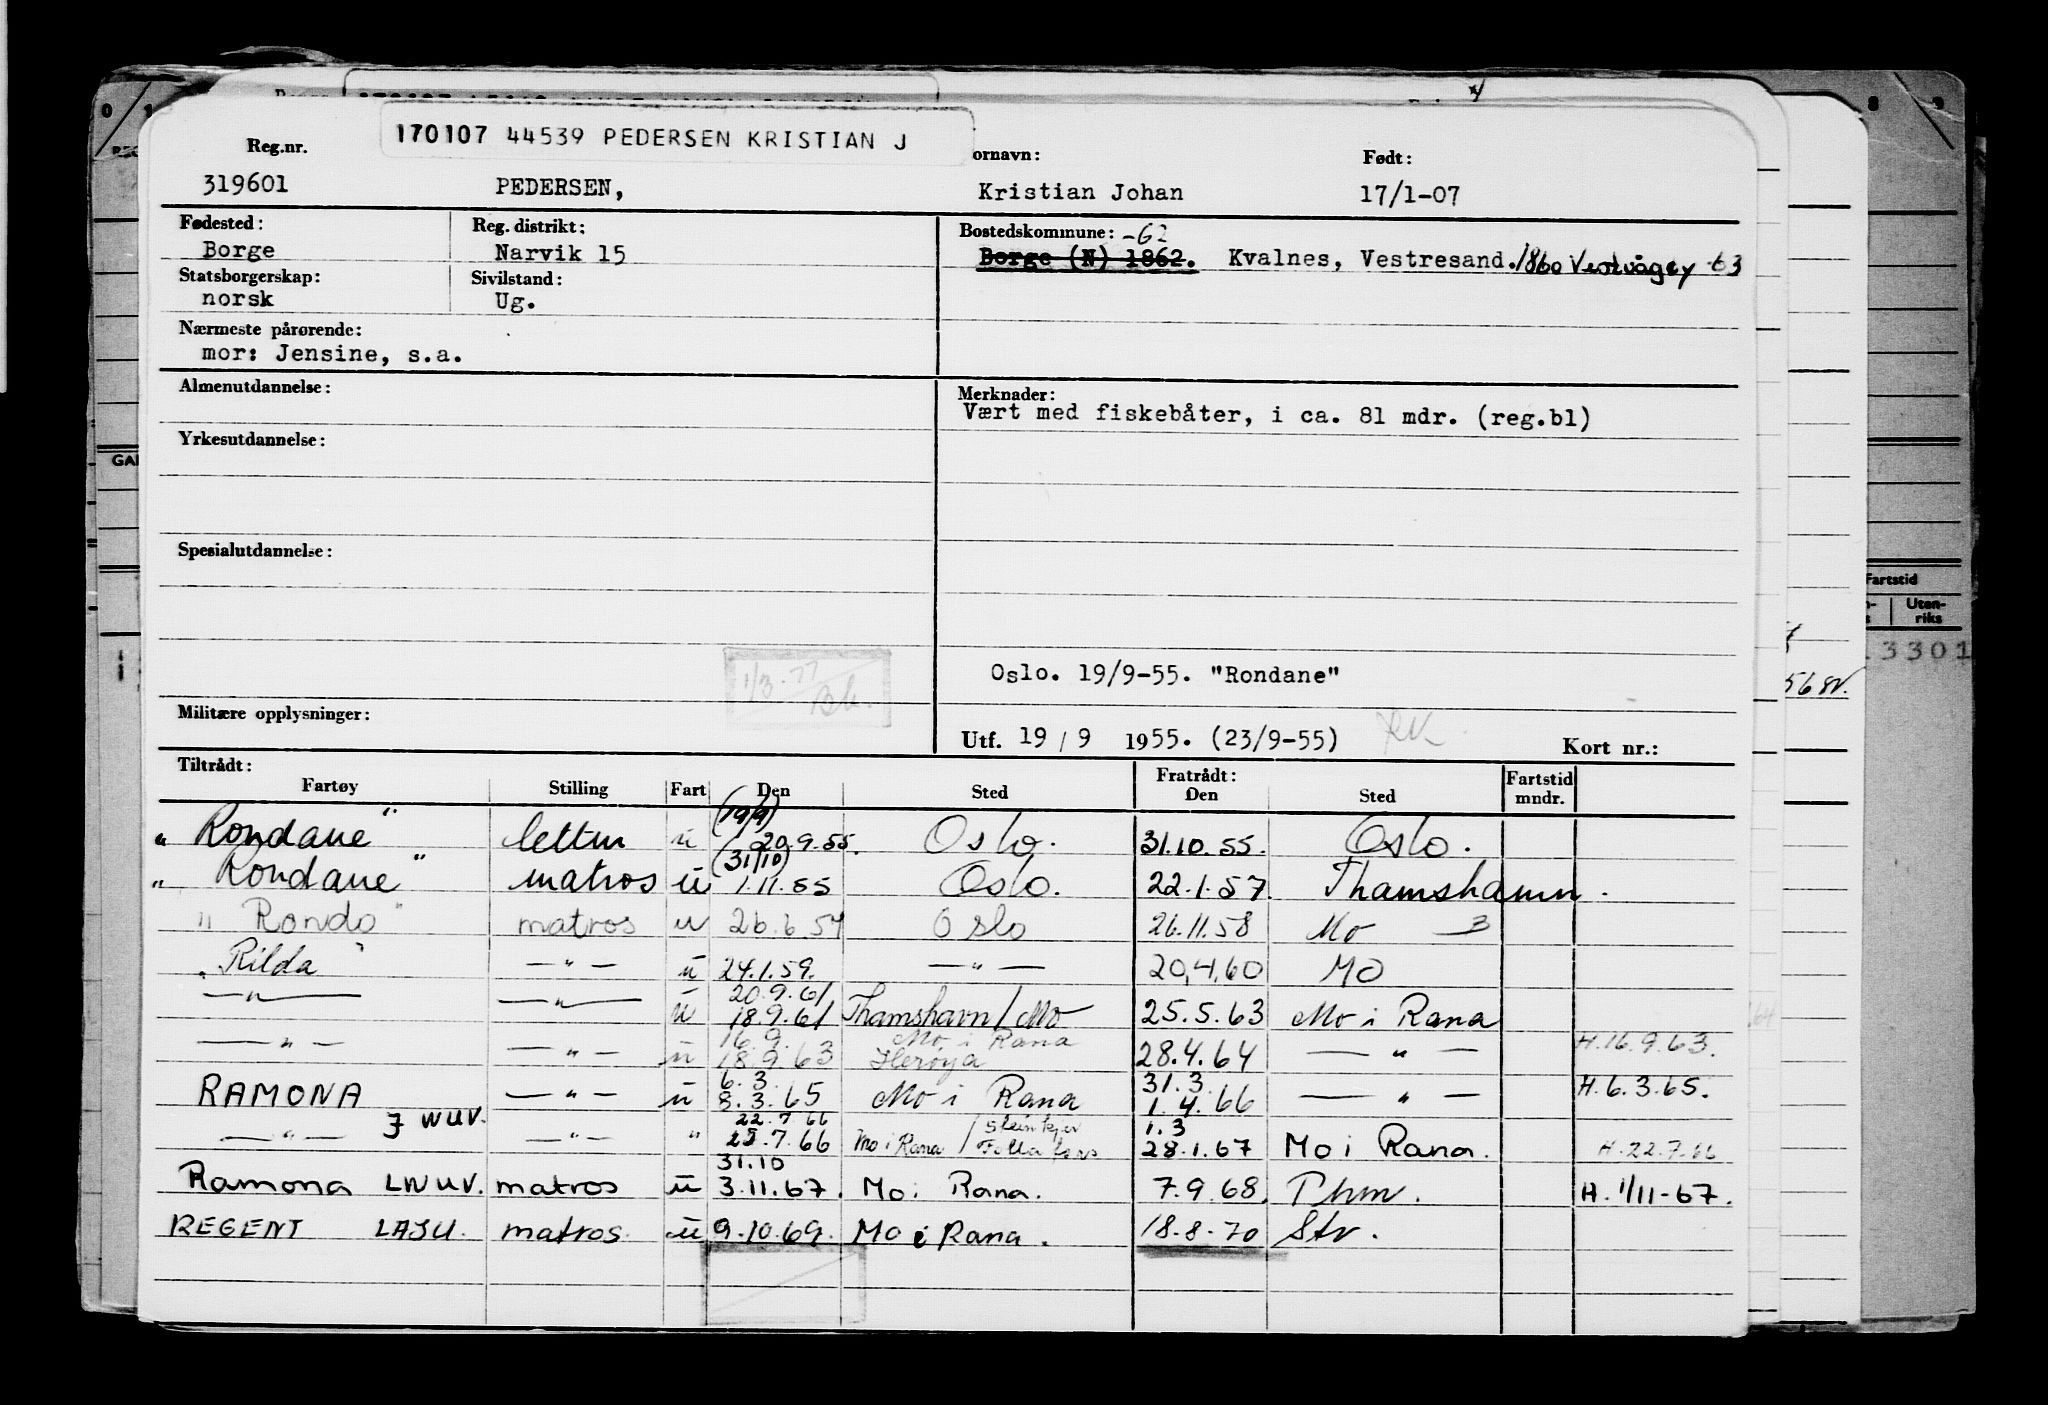 170107 44539 PEDERSEN KRISTIAN J
Reg.nr. ornavn: Født:
319601 PEDERSEN, Kristian Johan 17/1-07
Fødested: Reg. distrikt: Bostedskommune: -62
Borge Narvik 15 Borge (N) 1862. Kvalnes, Vestresand. 1860 Vestvågøy -63
Statsborgerskap: Sivilstand:
norsk Ug.
Nærmeste pårørende:
mor: Jensine, s.a.
Almenutdannelse: Merknader:
Vært med fiskebåter, i ca. 81 mdr. (reg.bl)
Yrkesutdannelse:
Spesialutdannelse:
1/3-77
Oslo. 19/9-55. "Rondane"
Militære opplysninger:
Utf. 19 / 9 1955. (23/9-55) Kort nr.:
Tiltrådt: Fratrådt: Fartstid
Fartøy Stilling Fart Den Sted Den Sted mndr.
(19/9)
"Rondane" lettm ü 20.9.55. Oslo. 31.10.55. Oslo.
(31/10)
"Rondane" matros ü 1.11.55 Oslo. 22.1.57. Thamshamn.
"Rondo" matros u 26.6.57 Oslo 26.11.58 Mo 3
"Rilda" —"— ü 24.1.59. —"— 20.4.60 MO
20.9.61
—"— —"— ü 18.9.61 Thamshavn / Mo 25.5.63 Mo i Rana
16.9. Mo i Rana
—"— —"— ü 18.9.63 Herøya 28.4.64 —"— H.16.9.63.
6.3. 31.3
RAMONA —"— ü 8.3.65 Mo i Rana 1.4.66 —"— H.6.3.65.
WUV. 22.7.66 Steinkjer 1.3
—"— —"— " 25.7.66 Mo i Rana / Follafoss 28.1.67 Mo i Rana. H.22.7.66
31.10
Ramona LWUV. matros ü 3.11.67. Mo i Rana. 7.9.68. Thm. H.1/11-67.
REGENT LAJU. matros ü 9.10.69. Mo i Rana. 18.8.70 Str.
Fartstid
Uten-
riks
3301